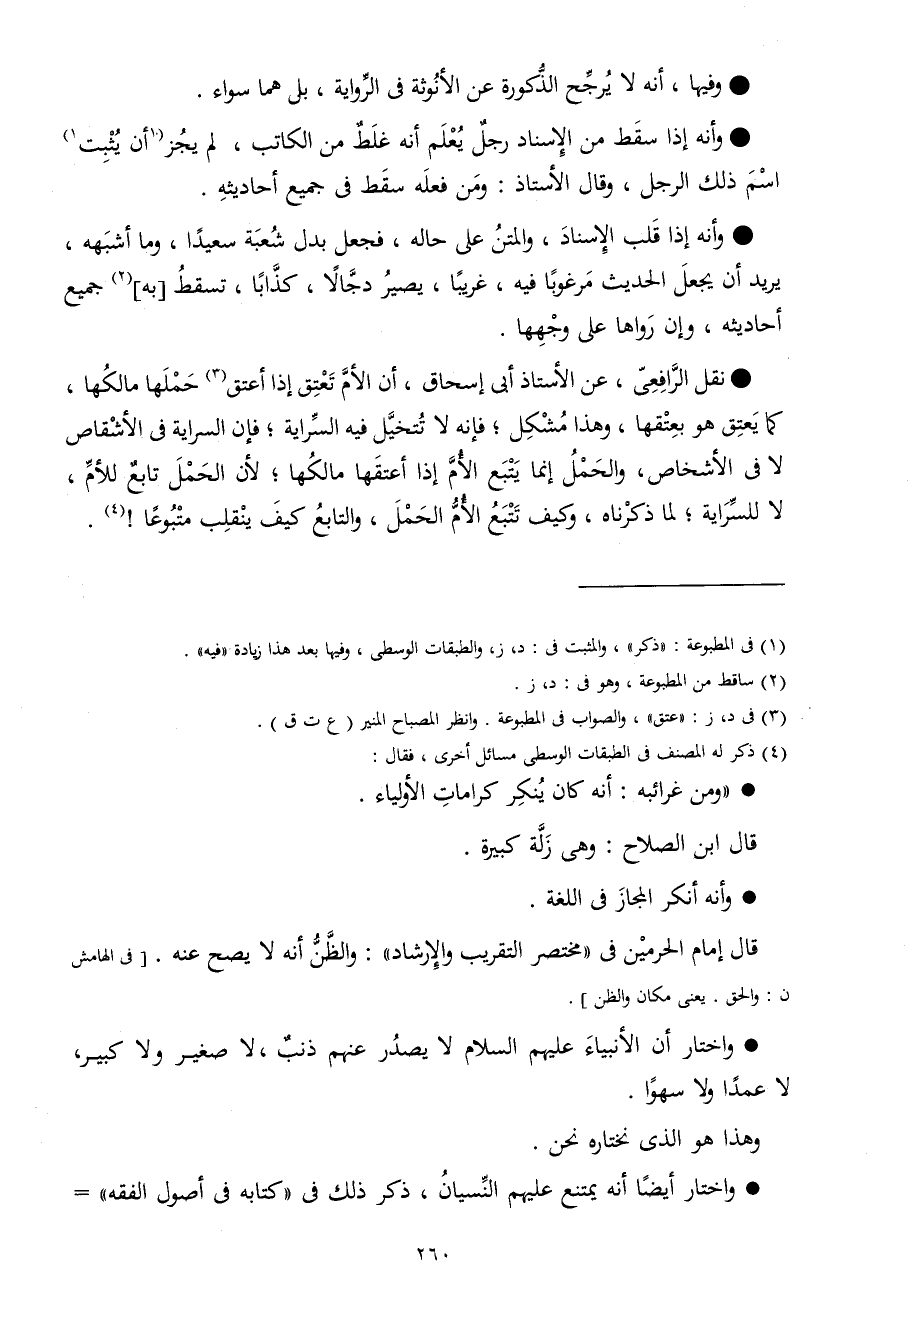 ● وفيها ، أنه لا يُرجِّح الذُّكورة عن الأنُوثة فى الرِّواية ، بلى هما سواء .
● وأنه إذا سقَط من الإِسناد رجلٌ يُعْلَم أنه غلَطٌ من الكاتب ، لم يجُز (١أن يُثْبِت١)
اسْمَ ذلك الرجل ، وقال الأستاذ : ومَن فعلَه سقَط فى جميع أحاديثهِ .
● وأنه إذا قَلب الإِسنادَ ، والمتنُ على حاله ، فجعل بدل شُعبَة سعيدًا ، وما أشبَهه ،
يريد أن يجعلَ الحديث مَرغوبًا فيه ، غريبًا ، يصيرُ دجَّالًا ، كذَّابًا ، تسقطُ [به](٢) جميع
أحاديثه ، وإن رَواها على وجْهِها .
● نقل الرَّافعِىّ ، عن الأستاذ أبى إسحاق ، أن الأمَّ تَعْتِق إذا أعتق(٣) حَمْلَها مالكُها ،
كما يَعتِق هو بعِتْقها ، وهذا مُشْكِل ؛ فإنه لا تُتخيَّل فيه السِّراية ؛ فإن السراية فى الأشْقاص
لا فى الأشخاص، والحَمْلُ إنما يَتْبَع الأُمَّ إذا أعتقَها مالكُها ؛ لأن الحَمْلَ تابعٌ للأمِّ ،
لا للسِّرَاية ؛ لما ذكرْناه ، وكيف تَتْبَعُ الأُمُّ الحَمْلَ ، والتابعُ كيفَ ينْقلِب متْبُوعًا !(٤) .
(١) فى المطبوعة : «ذكر» ، والمثبت فى : د، ز، والطبقات الوسطى ، وفيها بعد هذا زيادة «فيه» .
(٢) ساقط من المطبوعة ، وهو فى : د، ز .
(٣) فى د، ز : «عتق» ، والصواب فى المطبوعة . وانظر المصباح المنير ( ع ت ق ) .
(٤) ذكر له المصنف فى الطبقات الوسطى مسائل أخرى ، فقال :
● «ومن غرائبه : أنه كان يُنكِر كراماتِ الأولياء .
قال ابن الصلاح : وهى زَلَّة كبيرة .
● وأنه أنكر المجازَ فى اللغة .
قال إمام الحرميْن فى «مختصر التقريب والإِرشاد» : والظَّنُّ أنه لا يصح عنه . [ فى الهامش
ن : والحق . يعنى مكان والظن ] .
● واختار أن الأنبياءَ عليهم السلام لا يصدُر عنهم ذنبٌ ،لا صغيـر ولا كبيـر،
لا عمدًا ولا سهوًا .
وهذا هو الذى نختاره نحن .
● واختار أيضًا أنه يمتنع عليهم النِّسيانُ ، ذكر ذلك فى «كتابه فى أصول الفقه» =
٢٦٠